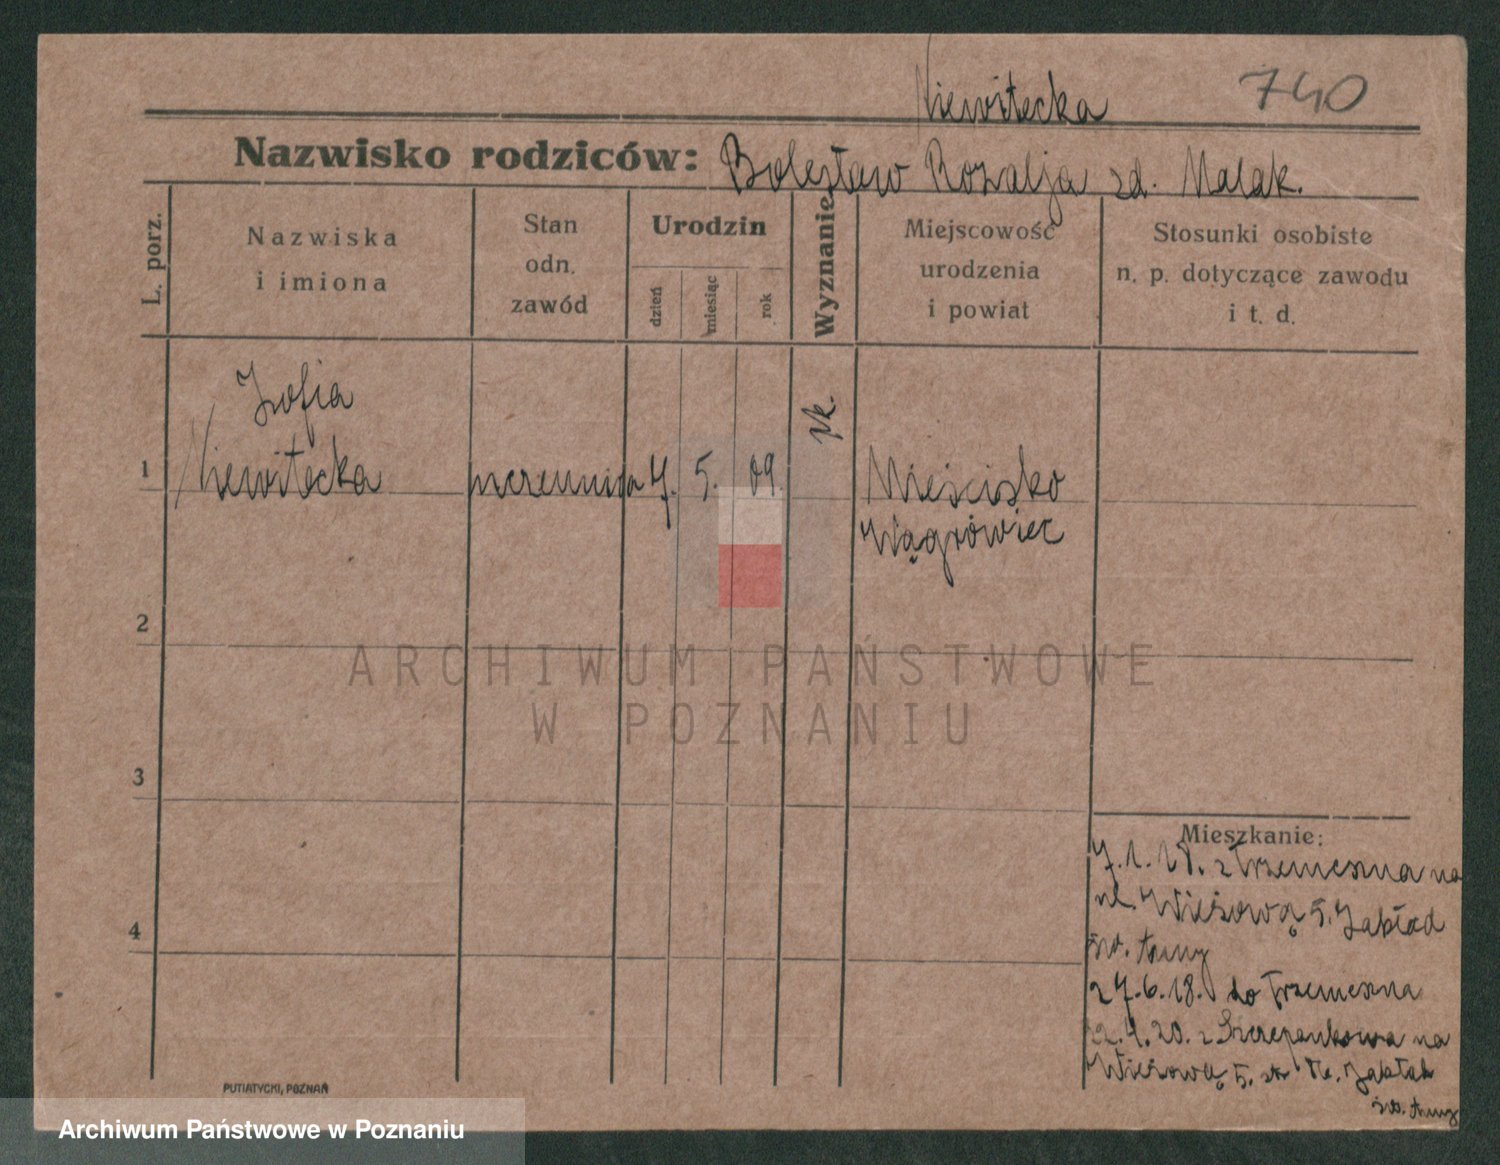 Niewitecka 740
Nazwisko rodziców: Bolesław Rozalja zd. Malak.
L. porz.
Nazwiska
i imiona
Stan
odn.
zawód
Urodzin
dzień
miesiąc
rok
Wyznanie
Miejscowość
urodzenia
i powiat
Stosunki osobiste
n. p. dotyczące zawodu
i t. d.
1
Zofia
Niewitecka
uczennica
7. 5. 09.
rk.
Mieścisko
Wągrówiec
2
3
4
Mieszkanie:
7.1.18. z Trzemeszna na
ul. Wieżową 5. Zakład
św. Anny
27.6.18. do Trzemeszna
22.4.20. z Szczepankowa na
Wieżową 5. Zakład
św. Anny
PUTIATYCKI, POZNAŃ
ARCHIWUM PAŃSTWOWE
W POZNANIU
Archiwum Państwowe w Poznaniu